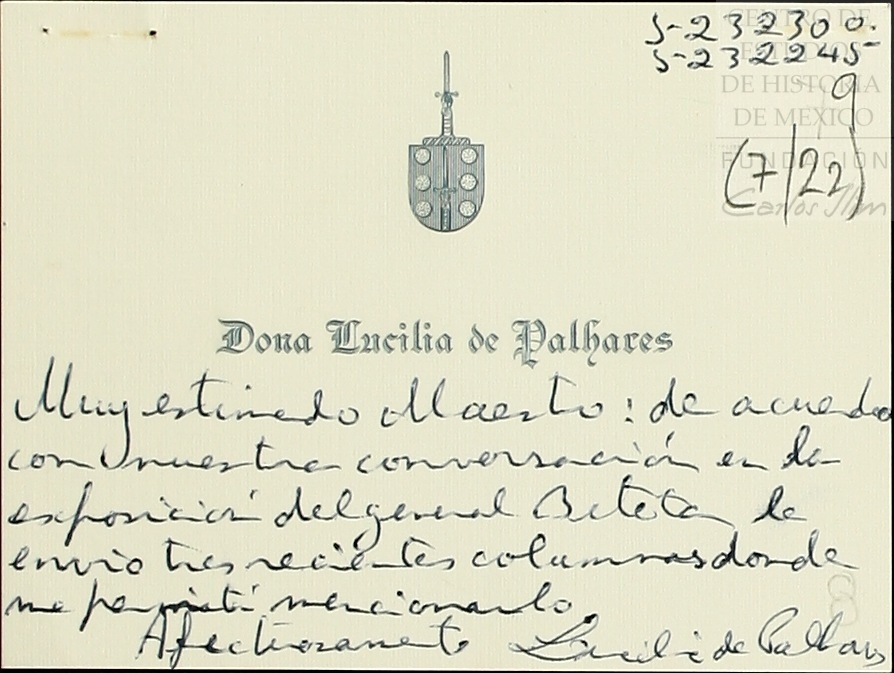 5-232300.
5-232245
9
(7/22)
CENTRO DE
ESTUDIOS
DE HISTORIA
DE MEXICO
FUNDACIÓN
Carlos Slim
Dona Lucilia de Palhares
Muy estimado Maestro: de acuerdo
con nuestra conversación en la
exposición del general Beteta, le
envío tres recientes columnas donde
me permití mencionarlo.
Afectuosamente Lucilia de Palhares